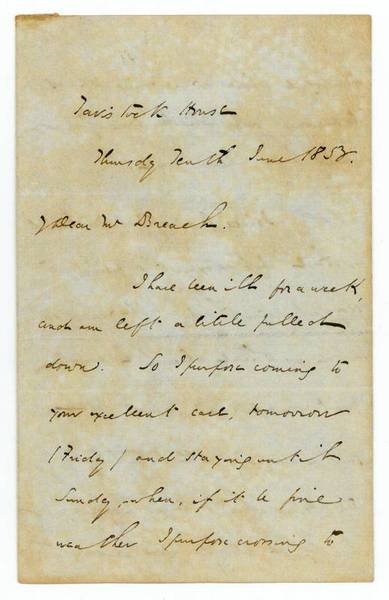 Tavistock House
Thursdy Tenth June 1853.
My Dear Mr Breach.
I have been ill for a week,
and am left a little pulled
down. So I purpose coming to
your excellent care, tomorrow
(Friday) and staying until
Sunday, when, if it be fine
weather I purpose crossing to